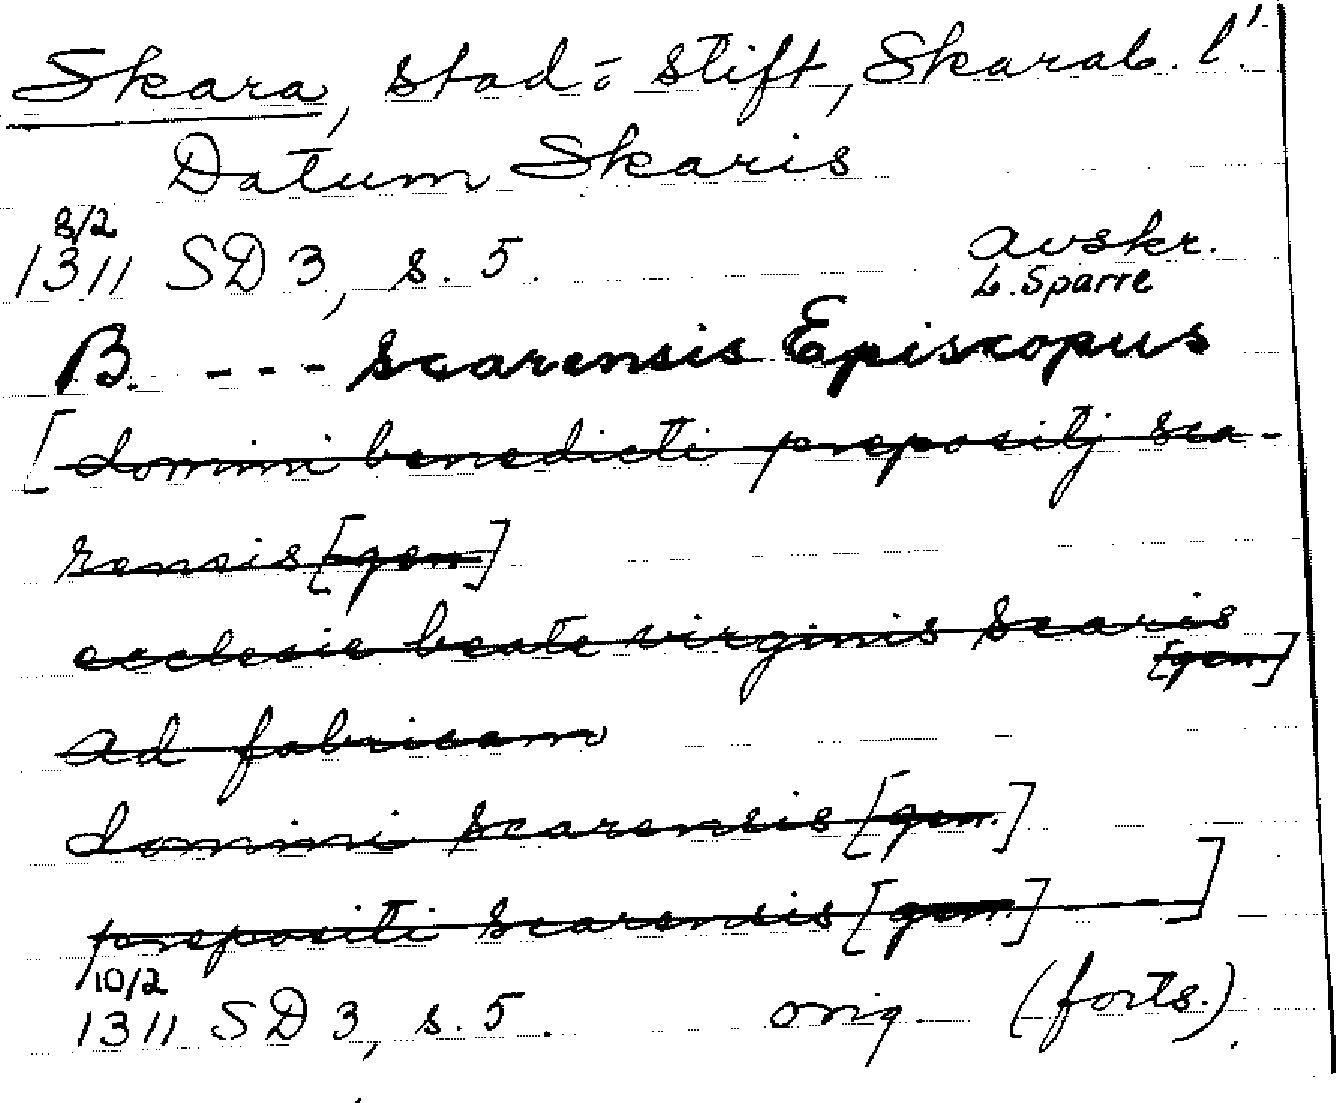 Skara, stad o. stift, Skarab. l.
Datum Skaris
8/2
1311 SD 3, s. 5. avskr.
L. Sparre
B. --- scarensis Episcopus
[domini benedicti prepositj sca-
rensis [gen]
ecclesie beate virginis scaris
[gen.]
ad fabricam
domini scarensis [gen.]
prepositi scarensis [gen.] ---]
10/2
1311 SD 3, s. 5. orig (forts.).